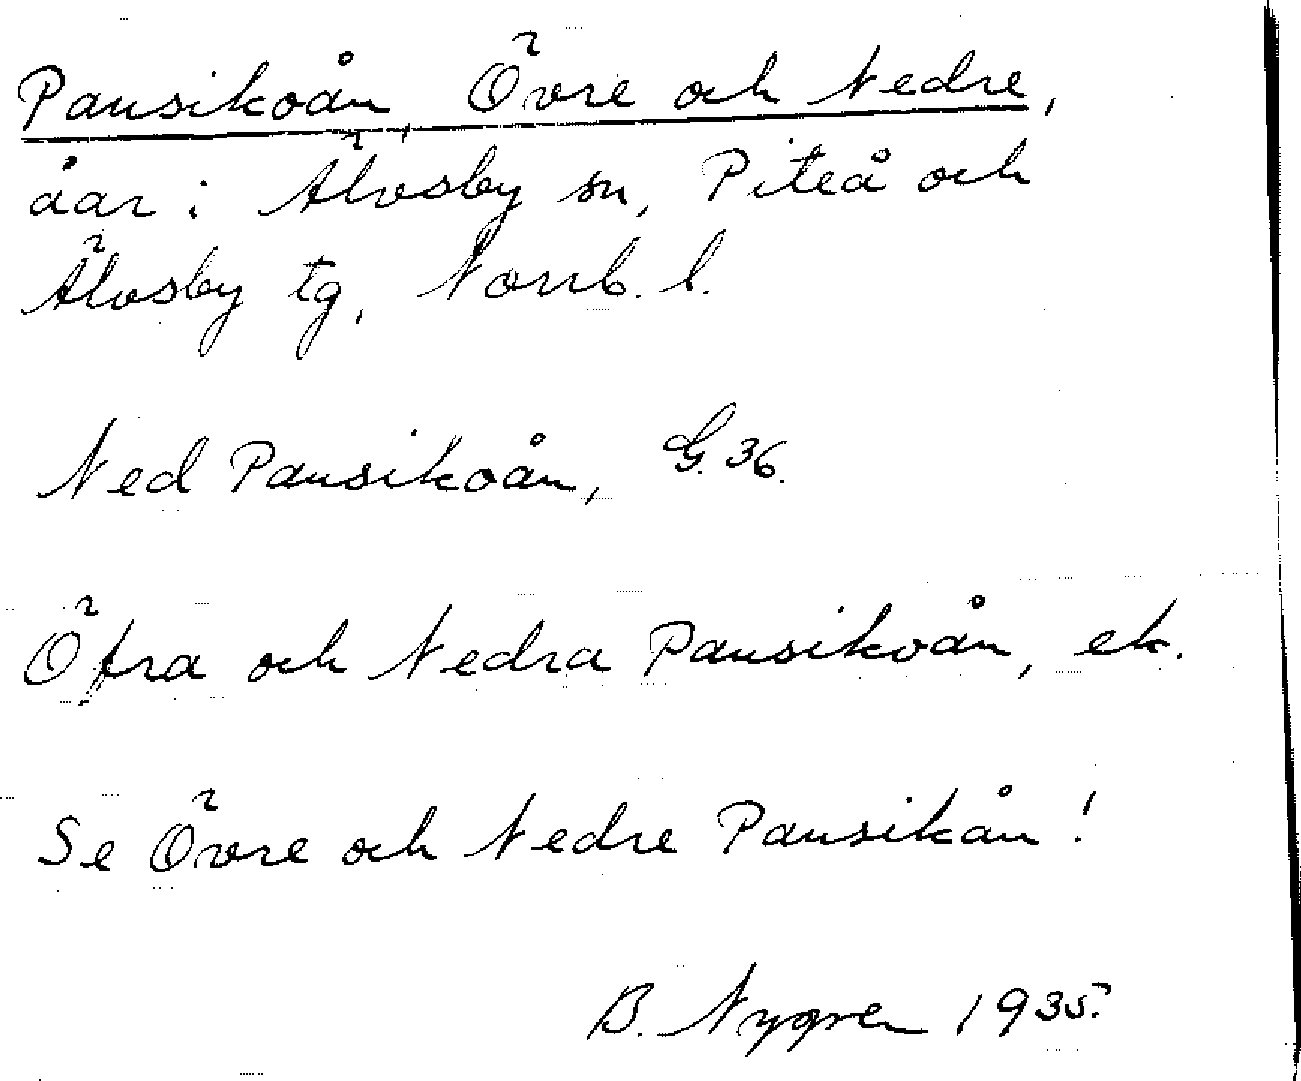 Pausikoån, Övre och Nedre,
åar i Älvsby sn, Piteå och
Älvsby tg, Norrb. l.
Ned Pausikoån, G. 36.
Öfra och Nedra Pausikoån, ek.
Se Övre och Nedre Pausikån!
B. Nygren 1935.